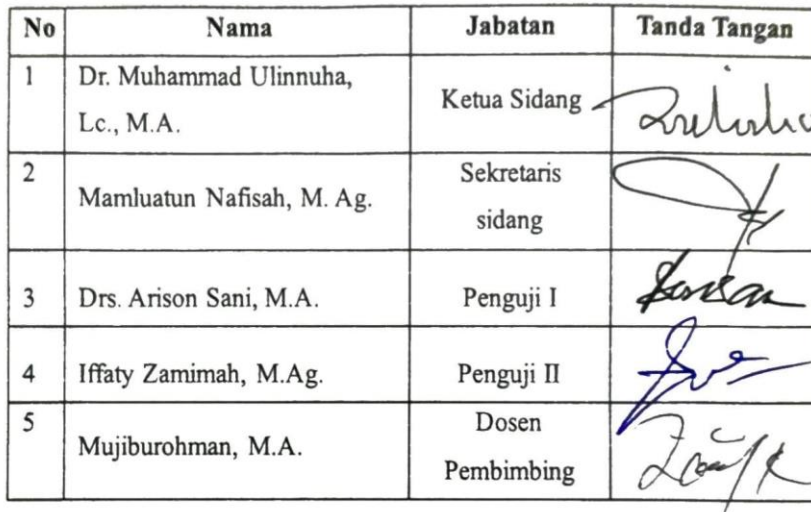 No Nama Jabatan Tanda Tangan
1 Dr. Muhammad Ulinnuha,
Lc., M.A.
Ketua Sidang
2 Mamluatun Nafisah, M. Ag.
Sekretaris
sidang
3 Drs. Arison Sani, M.A. Penguji I
4 Iffaty Zamimah, M.Ag. Penguji II
5 Mujiburohman, M.A.
Dosen
Pembimbing